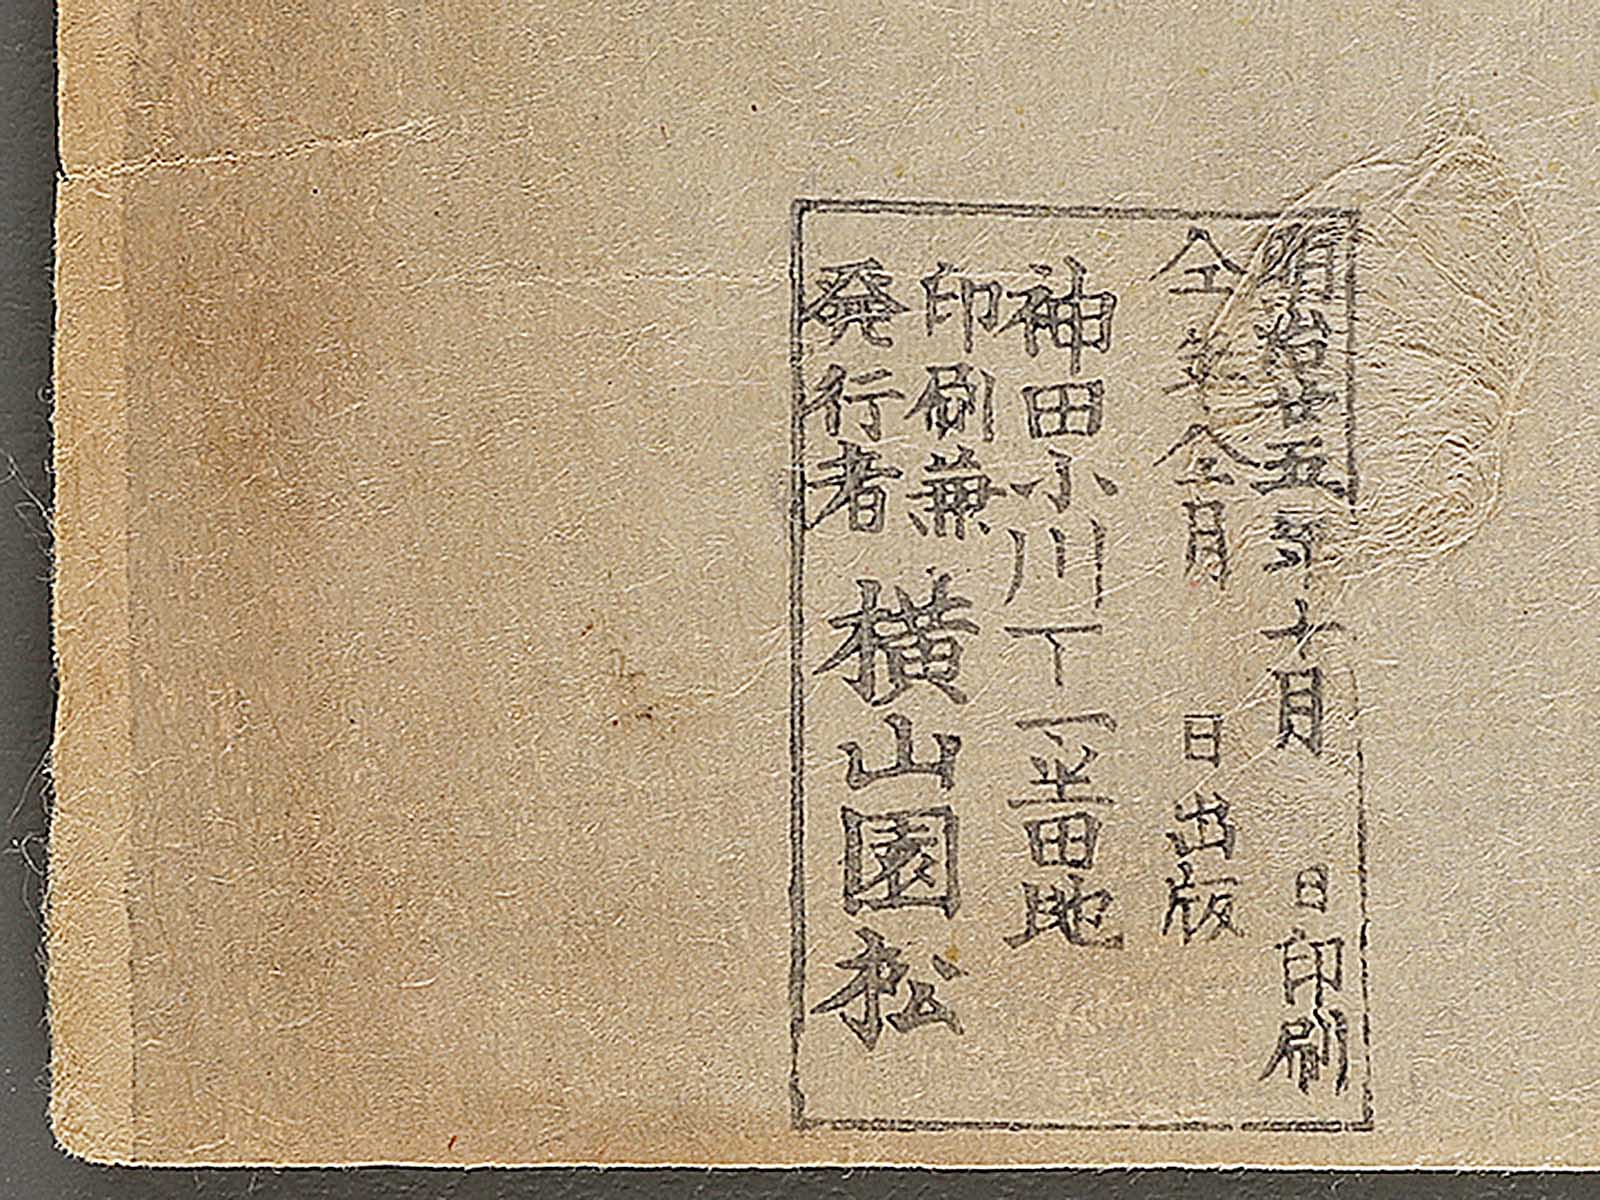 明治廿五年十月　日印刷
仝年仝月　日出版
神田小川丁一番地
印刷兼
発行者 横山園松